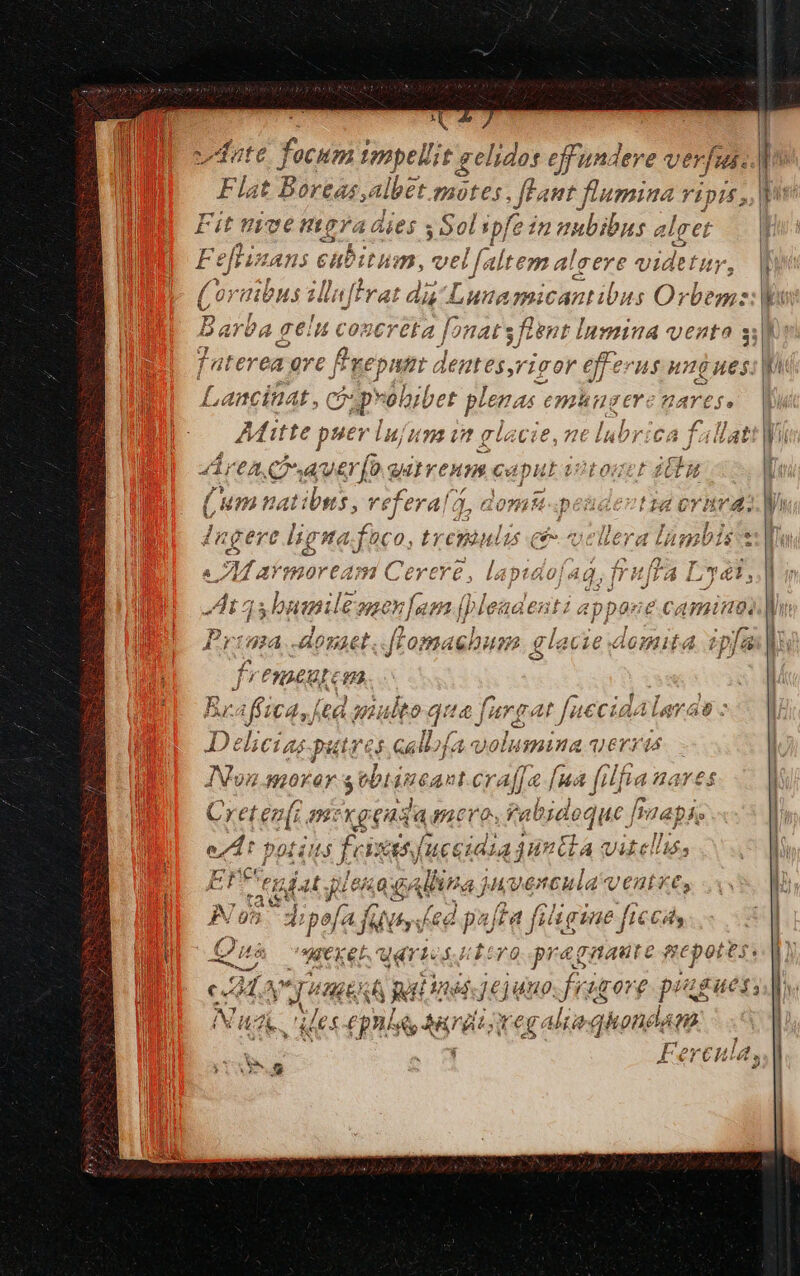 ( 2 )
Ante focum impellit gelidos effundere versus.
Flat Boreas, albēt mōtes, stant flumina ripis,
Fit nive nigra dies, Sol ipse in nubibus alget
Festinans cubitum, vel saltem algere videtur,
Cornibus illustrat dū Luna micantibus Orbem:
Barba gelu concreta sonat, flent lumina vento;
Interea ore strepunt dentes, rigor efferus ungues
Lancinat, & prohibet plenas emungere nares.
Mitte puer lusum in glacie, ne lubrica fallat
Area, & averso vitreum caput intonet ictu
Cum natibus, referasq́, domū pendentia crura:
Ingere ligna foco, tremulis & vellera lumbis:
Marmoream Cererē, lapidosaq́, frusta Lyæi,
Atq; humilē mensam splendenti appone camino.
Prima domet stomachum glacie domita ipsa
frementem
Braffica, sed multo quæ surgat succida lardo:
Delicias putres callosa volumina verris
Non moror, obtineant crassa sua silfia nares
Cretensi mergenda mero, rabidoque sinapi.
At potius frixis succidia juncta vitellis,
tendat plena gallina juvencula ventre,
Non diposa sed pasta siligine sicca,
varios utero pregnante nepotes.
patinas jejuno frigore pingues,
epulo, regalia quondam
Fercula,